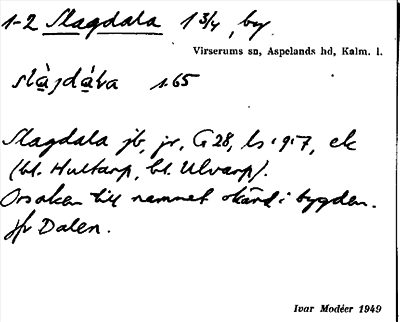 1-2 Slagdala 1 3/4, by
Virserums sn, Aspelands hd, Kalm. l.
slàgdáɫa 1.65
Slagdala jb, jr, G 28, ls 1917, ek
(bl. Hultarp, bl. Ulvarp).
Orsaken till namnet okänd i bygden.
jfr Dalen.
Ivar Modéer 1949